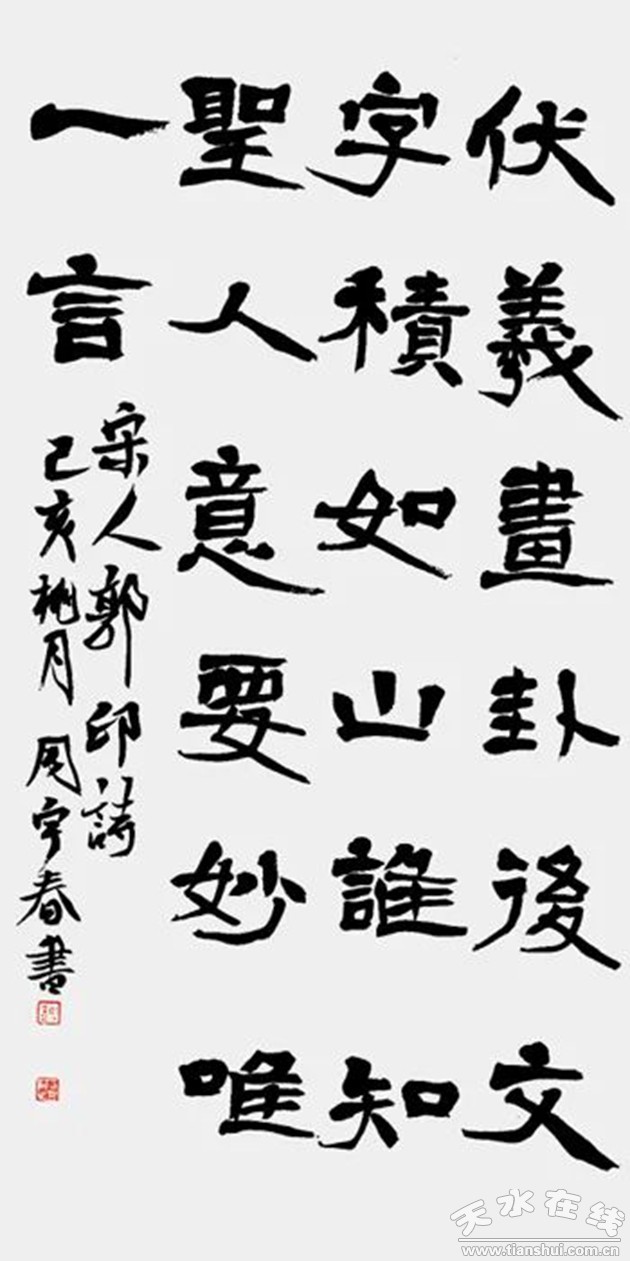 伏羲畫卦後文
字積如山誰知
聖人意要妙唯
一言
宋人郭印詩
己亥桃月周宇春書
天水在线
www.tianshui.com.cn